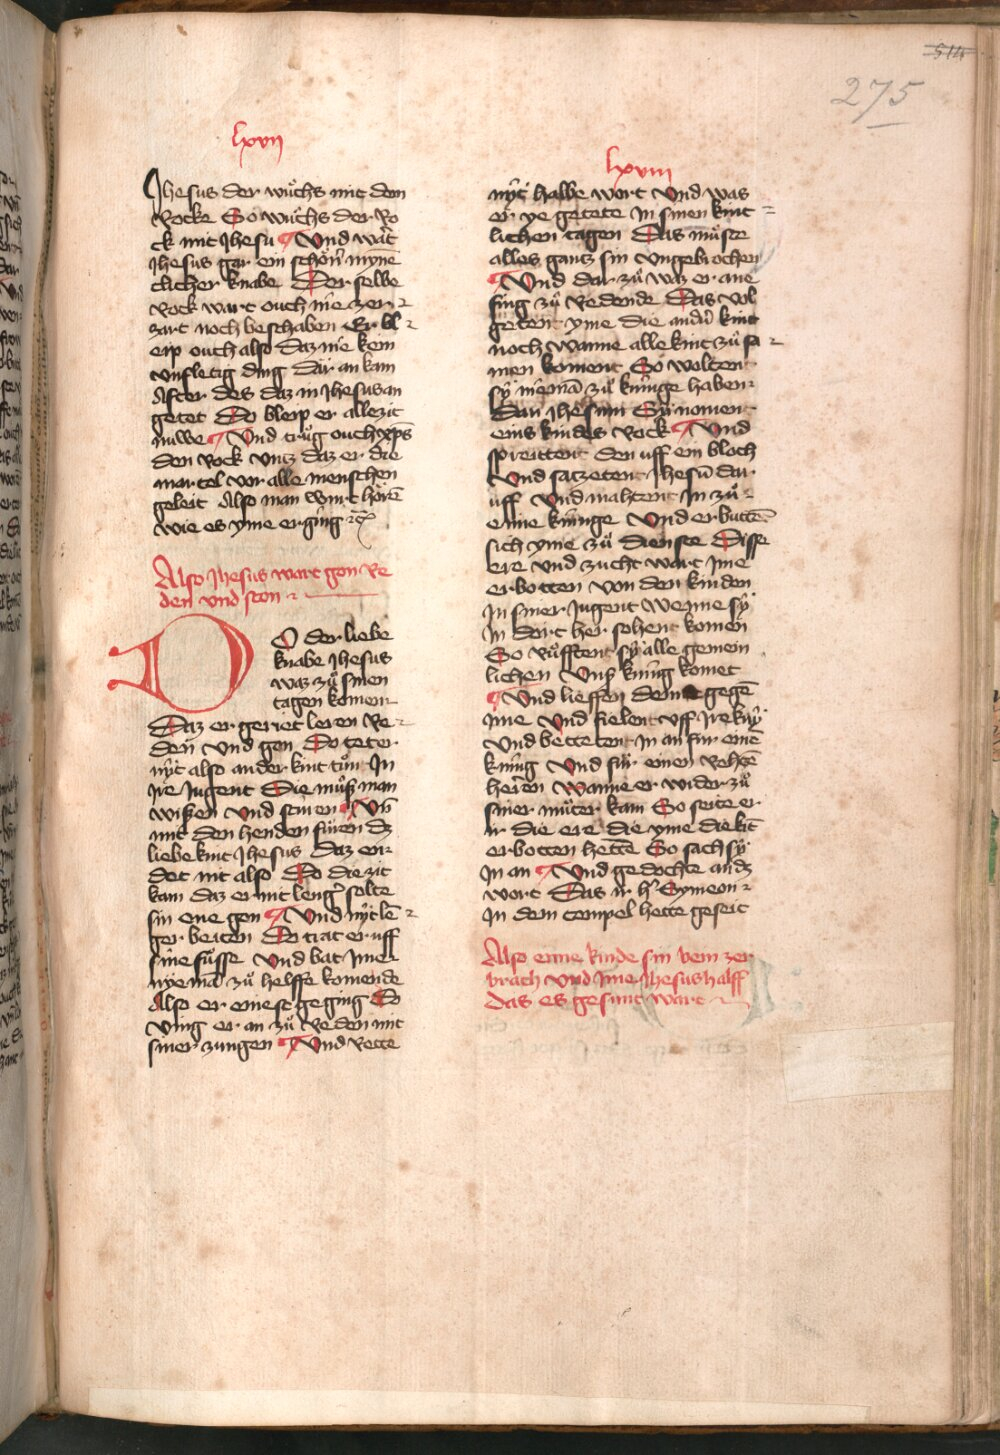 514
275
lxvij
Jhesus der wuͦchs mit dem
Rocke So wuͦchs der Ro
ck mit Jhesu ¶ Vnd wart
Jhesus gar ein schoͤn mynē
clicher knabe Der selbe
Rock wart ouch nie zer
zart noch beschaben Er bl
eip ouch also daz nie kein
vnfletig ding dar an kam
After des daz in Jhesus an
getet Do bleip er allezit
nuwe ¶ Vnd truͦg ouch xp̄s
den Rock vntz daz er die
martel vor alle menschen
geleit Also man wirt hoͤrē
wie es yme erging ꝛc̄
Also Jhesus wart gon Re
den vnd ston
DO der liebe
knabe Jhesus
waz zuͦ sinen
tagen komen
Daz er geriet leren Re
den vnd gon Do teter
nÿt also ander kint tuͦnt In
Jre Jugent Die muͦß man
wisen vnd stiuren ¶ Vn̄
mit den henden fuͤren dz
liebe kint Jhesus daz en
det nit also Do die zit
kam daz er nit leng' solte
sin one gon ¶ Vnd nÿt lē
ger beiten Do trat er uff
sine fuͤsse Vnd bat Jme
nyemā zuͦ helffe komende
Also er einest geging Do
ving er an zuͦ Reden mit
siner zungen ¶ Vnd Rette
lxviij
nÿt halbe wort Vnd was
er ye getete In sinen kint
lichen tagen Das muͤste
alles gantz sin vngebrochen
¶ Vnd dar zuͦ waz er ane
fing zuͦ Redende Das vol
geten yme die andn̄ kint
noch wanne alle kint zuͦ sa
men koment So wolten
sÿ niemā zuͦ kuͤnige haben
dan Jhesum Sÿ noment
eins kindes Rock ¶ Vnd
spreittent den uff ein bloch
Vnd satzetent Jhesū dar
uff Vnd mahtent In zuͦ
eime kuͤnige Vnd erbuttē
sich yme zuͦ dienste Disse
ere vnd zucht wart Jme
erbotten von den kinden
In siner Jugent Wenne sÿ
In dort her sohent komen
So Ruͦfftent sÿ alle gemein
lichen Vnß kuͤnig komet
¶ Vnd lieffen dem gegē
Jme Vnd fielent uff Jre knÿ
Vnd bettetent In an fur einē
kuͤnig Vnd fuͤr einen Rehtē
heren Wanne er wider zuͦ
siner muͦter kam So seite er
ir die ere die yme die kīt
erbotten hettē So sach sÿ
In an ¶ Vnd gedochte an dz
wort Das ir h' Symeon
In dem tempel hette geseit
Also eime kinde sin bein zer
brach vnd Jme Jhesus halff
das es gesunt wart